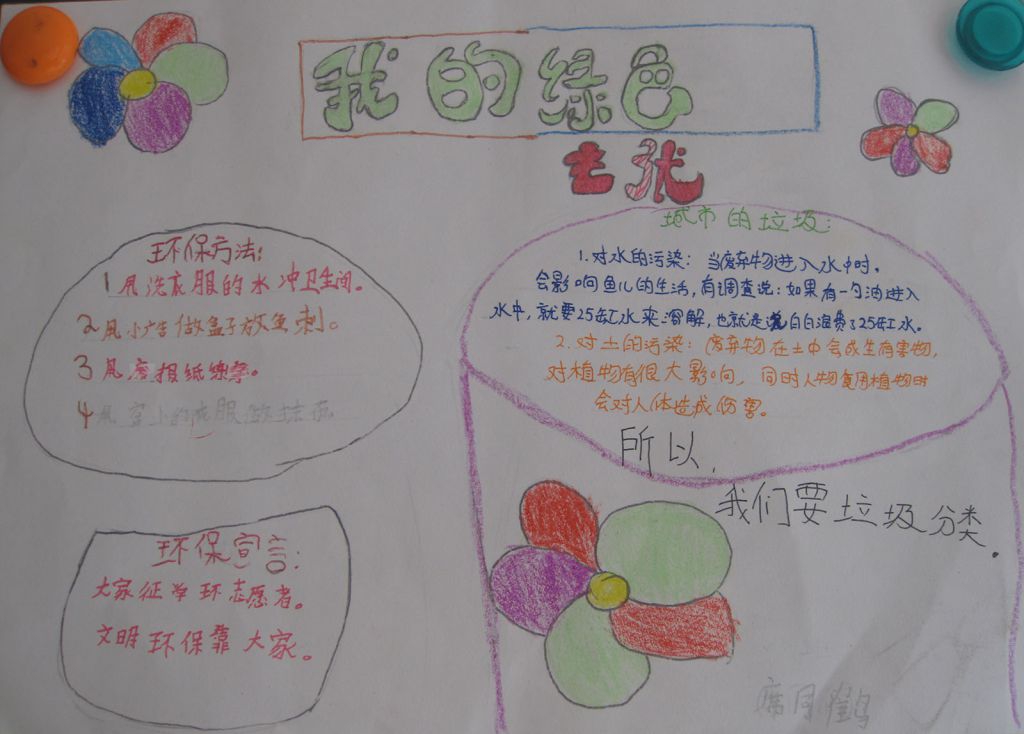 我的绿色
主张
环保方法:
1用洗衣服的水冲卫生间。
2用小广告做盒子放鱼刺。
3用废报纸练字。
4用穿小的衣服做抹布
城市的垃圾:
1.对水的污染: 当废弃物进入水中时,
会影响鱼儿的生活,有调查说:如果有一勺油进入
水中,就要25缸水来溶解,也就是说白白浪费了25缸水。
2.对土的污染: 废弃物在土中会成生有害物,
对植物有很大影响, 同时人物食用植物时
会对人体造成伤害。
所以,
我们要垃圾分类.
环保宣言:
大家征争环志愿者。
文明环保靠大家。